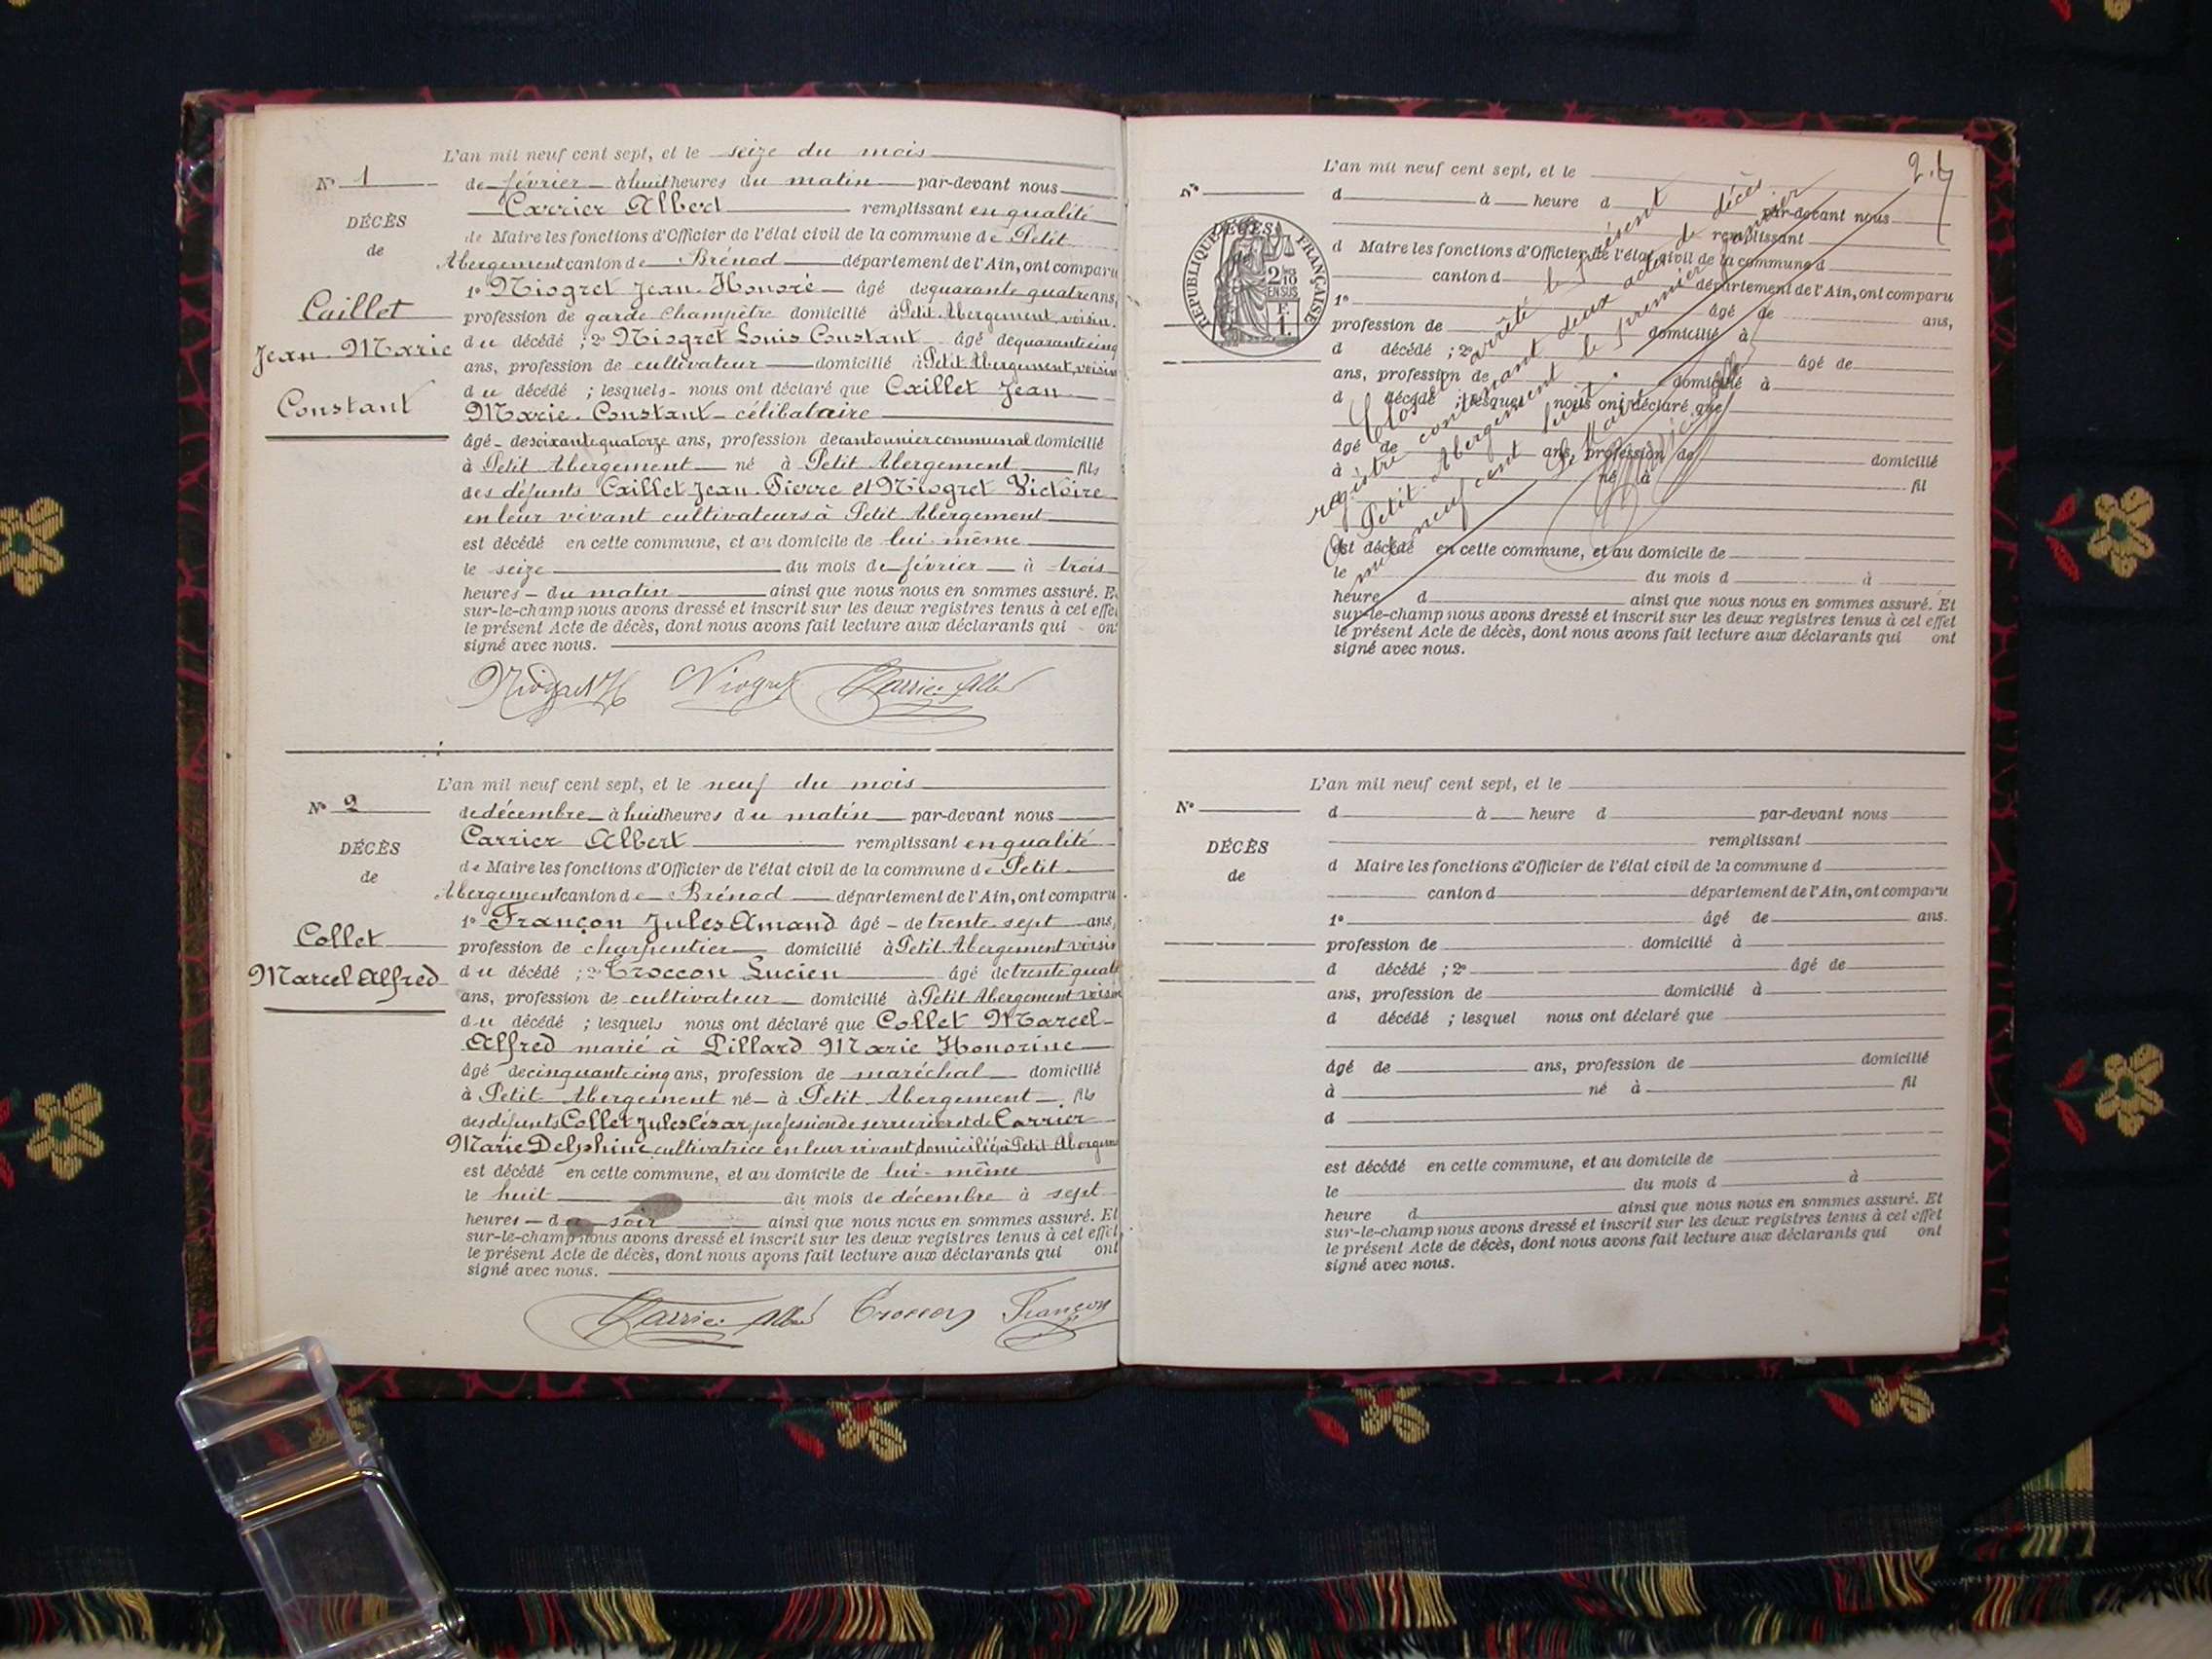 L'an mil neuf cent sept, et le seize du mois
N° 1
de février à huit heures du matin par-devant nous
Carrier Albert remplissant en qualité
DÉCÈS
de Maire les fonctions d'Officier de l'état civil de la commune de Petit
de
Abergement canton de Brénod département de l'Ain, ont comparu
1° Niogret Jean-Honoré âgé de quarante quatre ans,
Caillet
profession de garde Champêtre domicilié à Petit Abergement, voisin
Jean-Marie
du décédé ; 2° Niogret Louis Constant âgé de quarante cinq
ans, profession de cultivateur domicilié à Petit Abergement, voisin
du décédé ; lesquels nous ont déclaré que Caillet Jean
Constant
Marie-Constant célibataire
âgé de soixante quatorze ans, profession de cantonnier communal domicilié
à Petit Abergement né à Petit Abergement fils
des défunts Caillet Jean-Pierre et Niogret Victoire
en leur vivant cultivateurs à Petit Abergement
est décédé en cette commune, et au domicile de lui-même
le seize du mois de février à trois
heures du matin ainsi que nous nous en sommes assuré. Et
sur-le-champ nous avons dressé et inscrit sur les deux registres tenus à cet effet
le présent Acte de décès, dont nous avons fait lecture aux déclarants qui ont
signé avec nous.
Niogret H Niogret Carrier Albert
L'an mil neuf cent sept, et le neuf du mois
N° 2
de décembre à huit heures du matin par-devant nous
Carrier Albert remplissant en qualité
DÉCÈS
de Maire les fonctions d'Officier de l'état civil de la commune de Petit
de
Abergement canton de Brénod département de l'Ain, ont comparu
1° Françon Jules Amand âgé de trente sept ans,
Collet
profession de charpentier domicilié à Petit Abergement voisin
Marcel Alfred
du décédé ; 2° Troccon Lucien âgé de trente quatre
ans, profession de cultivateur domicilié à Petit Abergement voisin
du décédé ; lesquels nous ont déclaré que Collet Marcel
Alfred marié à Pillard Marie Honorine
âgé de cinquante cinq ans, profession de maréchal domicilié
à Petit Abergement né à Petit Abergement fils
des défunts Collet Jules César, profession de serrurier et de Carrier
Marie Delphine cultivatrice en leur vivant domiciliés à Petit Abergement
est décédé en cette commune, et au domicile de lui-même
le huit du mois de décembre à sept
heures du soir ainsi que nous nous en sommes assuré. Et
sur-le-champ nous avons dressé et inscrit sur les deux registres tenus à cet effet
le présent Acte de décès, dont nous avons fait lecture aux déclarants qui ont
signé avec nous.
Carrier Albert Troccon Françon
2.
L'an mil neuf cent sept, et le
N°
d à heure d par-devant nous
remplissant
d Maire les fonctions d'Officier de l'état civil de la commune d
canton d département de l'Ain, ont comparu
1° âgé de ans,
profession de domicilié à
d décédé ; 2° âgé de
ans, profession de domicilié à
d décédé ; lesquel nous ont déclaré que
âgé de ans, profession de domicilié
à né à fil
d
est décédé en cette commune, et au domicile de
le du mois d à
heure d ainsi que nous nous en sommes assuré. Et
sur-le-champ nous avons dressé et inscrit sur les deux registres tenus à cet effet
le présent Acte de décès, dont nous avons fait lecture aux déclarants qui ont
signé avec nous.
DÉCÈS
RÉPUBLIQUE FRANÇAISE
2/10
EN SUS
1 F.
Clos et arrêté le présent
registre contenant deux actes de décès
à Petit-Abergement le premier janvier
mil neuf cent huit.
Le Maire
L'an mil neuf cent sept, et le
N°
d à heure d par-devant nous
remplissant
DÉCÈS
d Maire les fonctions d'Officier de l'état civil de la commune d
de
canton d département de l'Ain, ont comparu
1° âgé de ans.
profession de domicilié à
d décédé ; 2° âgé de
ans, profession de domicilié à
d décédé ; lesquel nous ont déclaré que
âgé de ans, profession de domicilié
à né à fil
d
est décédé en cette commune, et au domicile de
le du mois d à
heure d ainsi que nous nous en sommes assuré. Et
sur-le-champ nous avons dressé et inscrit sur les deux registres tenus à cet effet
le présent Acte de décès, dont nous avons fait lecture aux déclarants qui ont
signé avec nous.